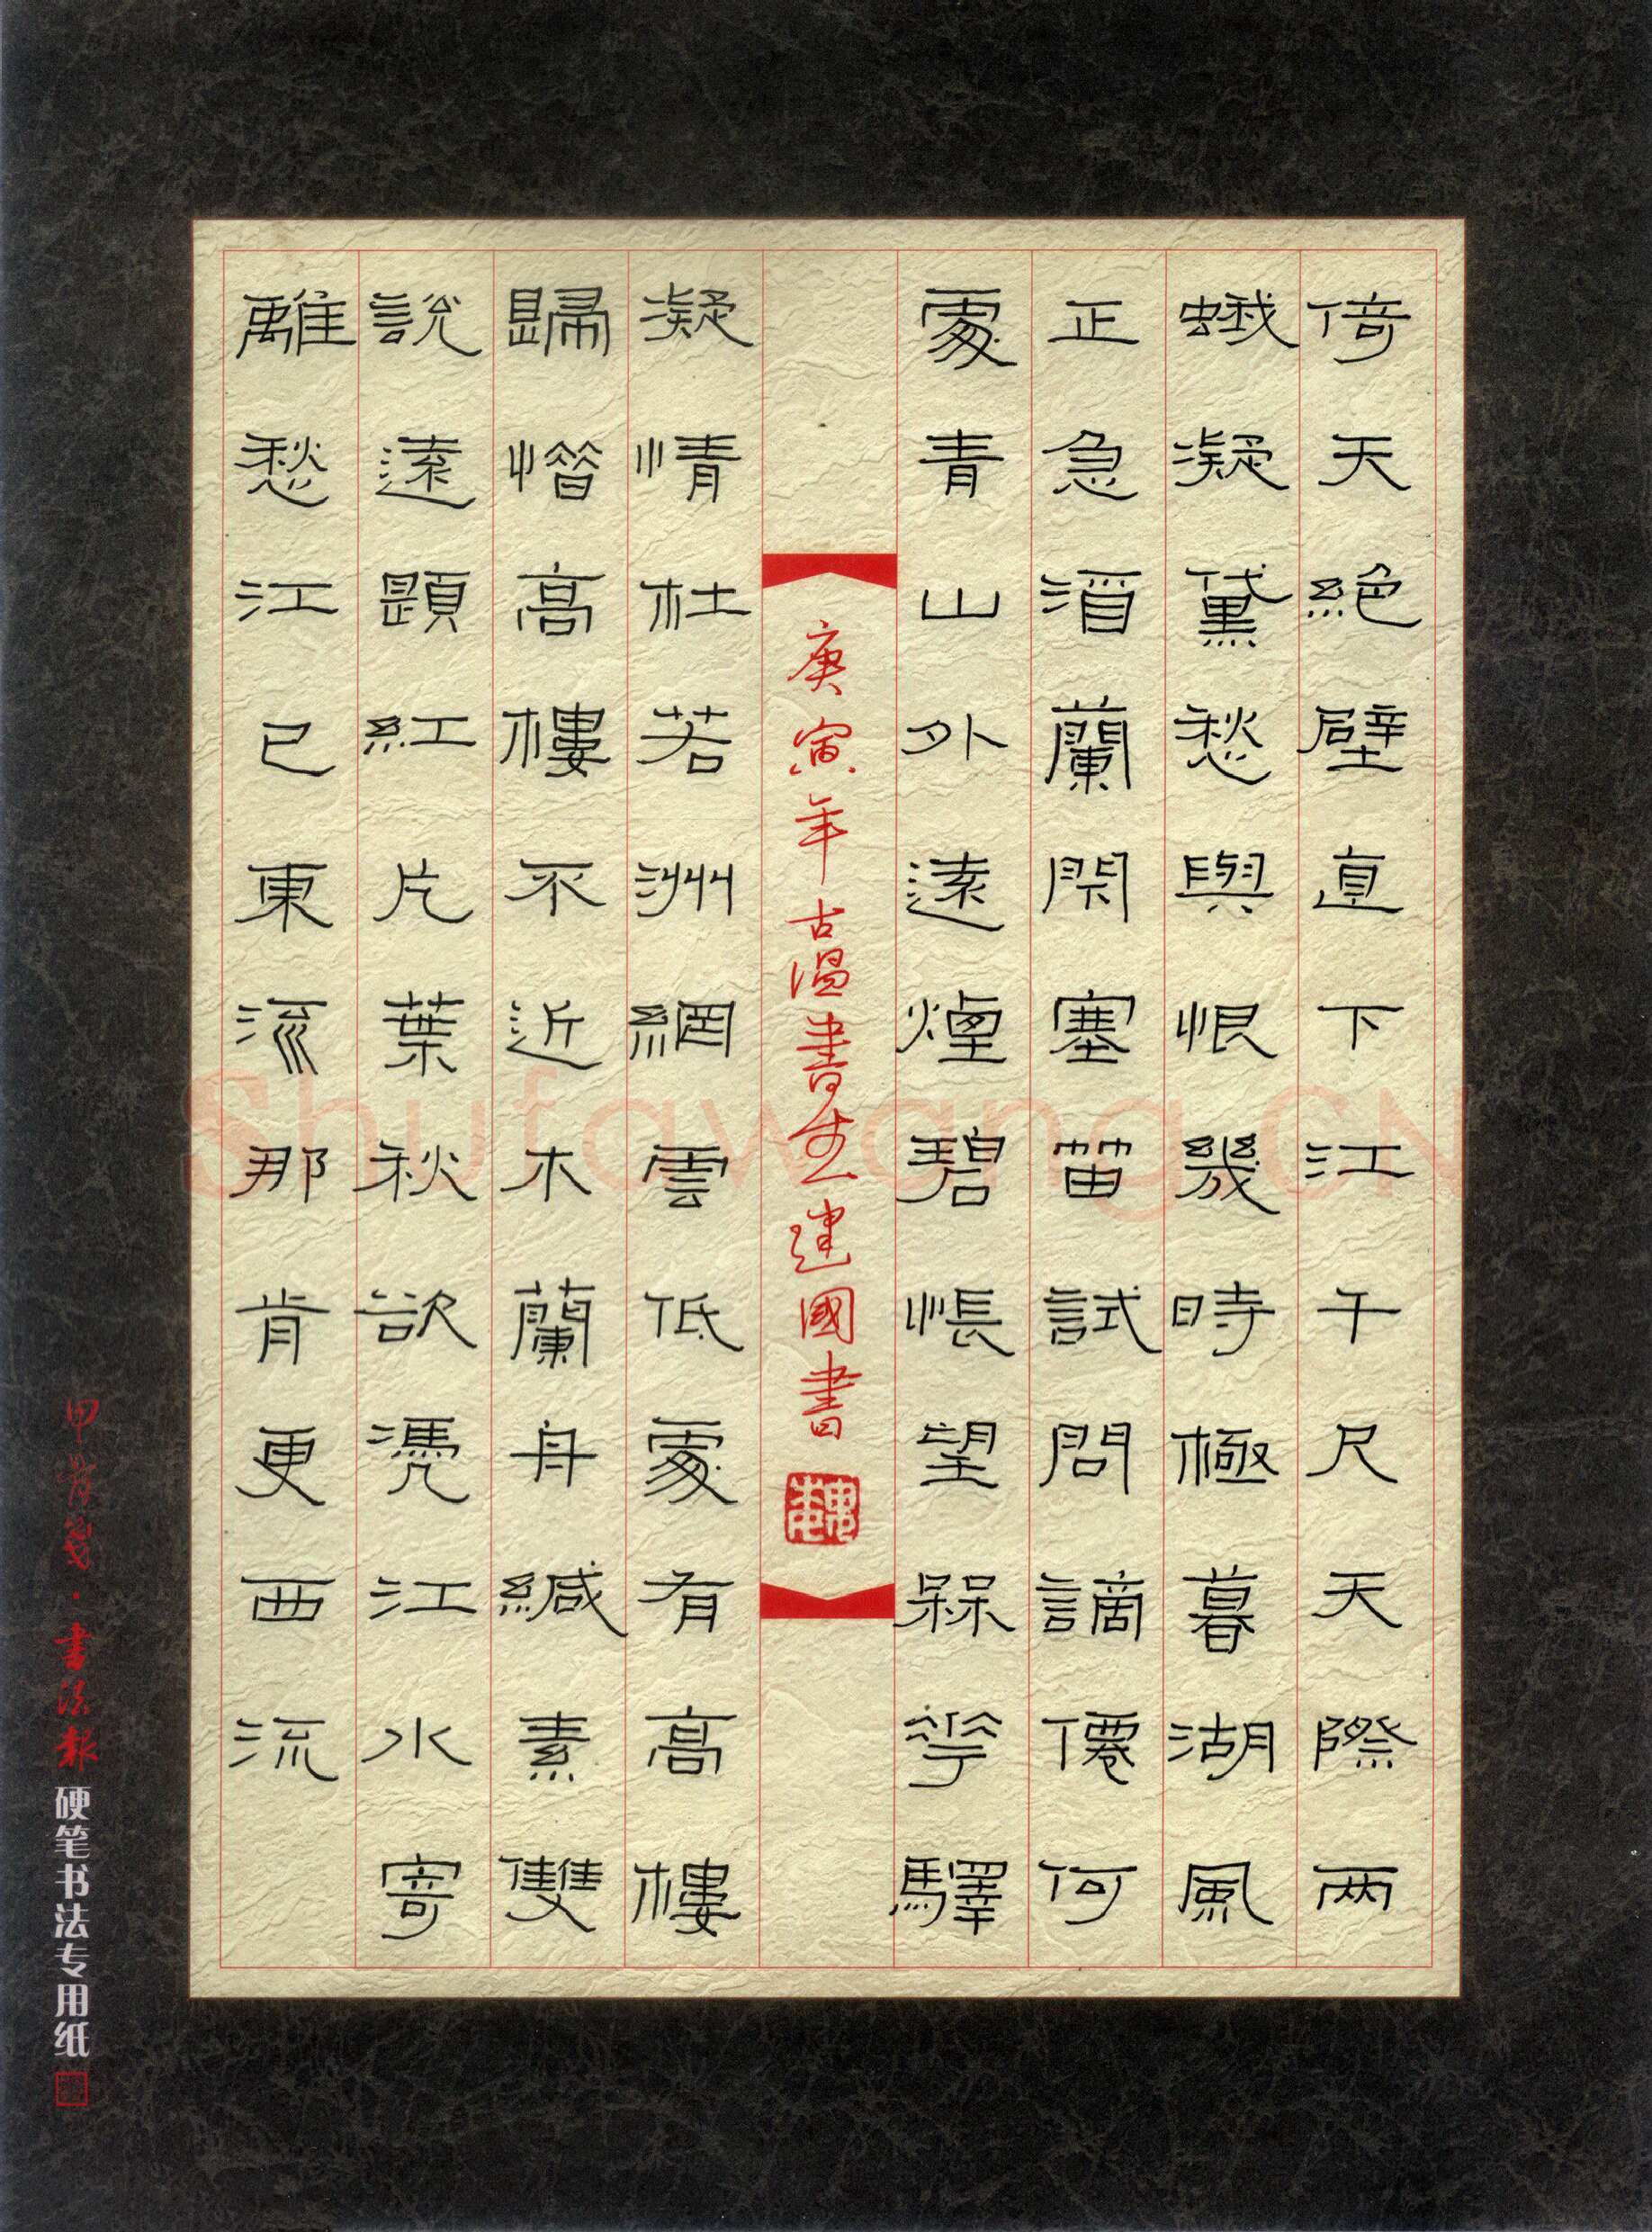 倚天絕壁直下江千尺天際兩
蛾凝黛愁與恨幾時極暮湖風
正急酒蘭聞塞笛試問謫僊何
處青山外遠煙碧悵望槑花驛
庚寅年古溫書生建國書
凝情杜若洲網雲低處有高樓
歸惜高樓不近木蘭舟緘素雙
說遠題紅片葉秋欲憑江水寄
離愁江已東流那肯更西流
甲骨箋·書法報硬笔书法专用纸
Shufawang.CN